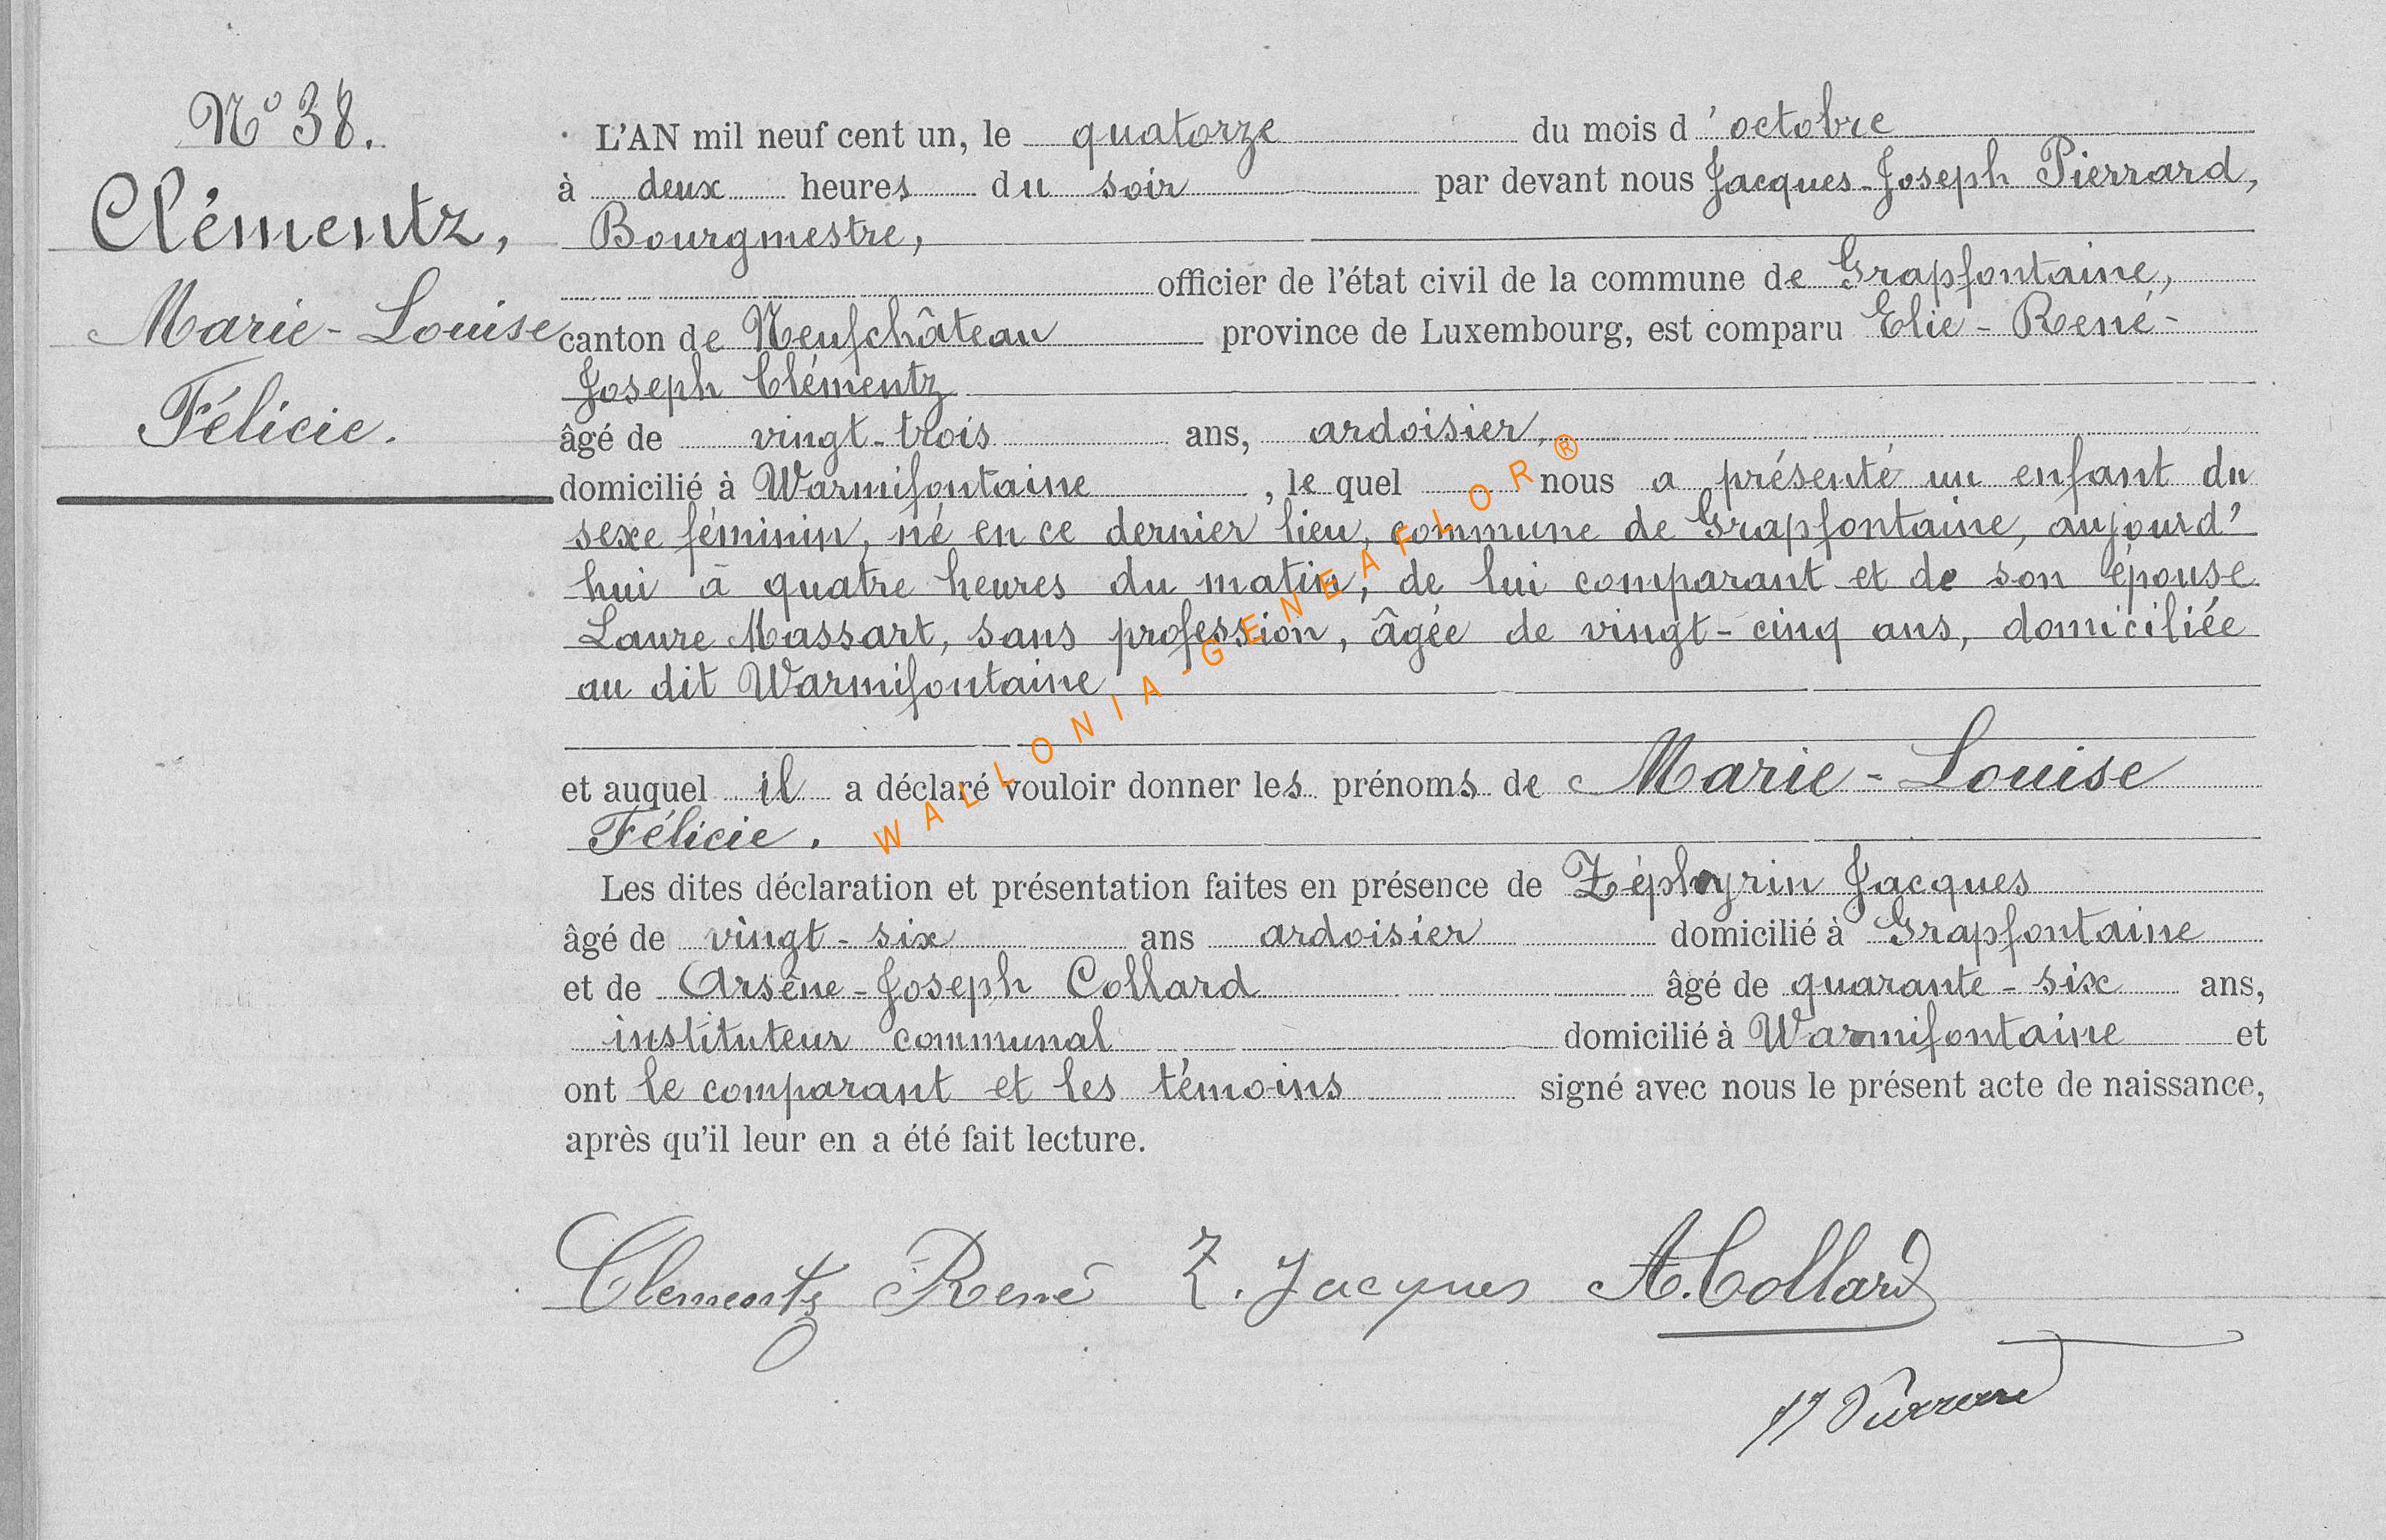 N° 38.
Clémentz,
Marie-Louise
Félicie.
L'AN mil neuf cent un, le quatorze du mois d'octobre
à deux heures du soir par devant nous Jacques-Joseph Pierrard,
Bourgmestre,
officier de l'état civil de la commune de Grapfontaine,
canton de Neufchâteau province de Luxembourg, est comparu Elie-René-
Joseph Clémentz
âgé de vingt-trois ans, ardoisier,
domicilié à Warmifontaine, le quel nous a présenté un enfant du
sexe féminin, né en ce dernier lieu, commune de Grapfontaine, aujourd'
hui à quatre heures du matin, de lui comparant et de son épouse
Laure Massart, sans profession, âgée de vingt-cinq ans, domiciliée
au dit Warmifontaine
et auquel il a déclaré vouloir donner les prénoms de Marie-Louise
Félicie.
Les dites déclaration et présentation faites en présence de Zéphyrin Jacques
âgé de vingt-six ans ardoisier domicilié à Grapfontaine
et de Arsène-Joseph Collard âgé de quarante-six ans,
instituteur communal domicilié à Warmifontaine et
ont le comparant et les témoins signé avec nous le présent acte de naissance,
après qu'il leur en a été fait lecture.
Clementz René Z. Jacques A. Collard
JJ Pierrard
WALLONIA-GENEAFLOR®